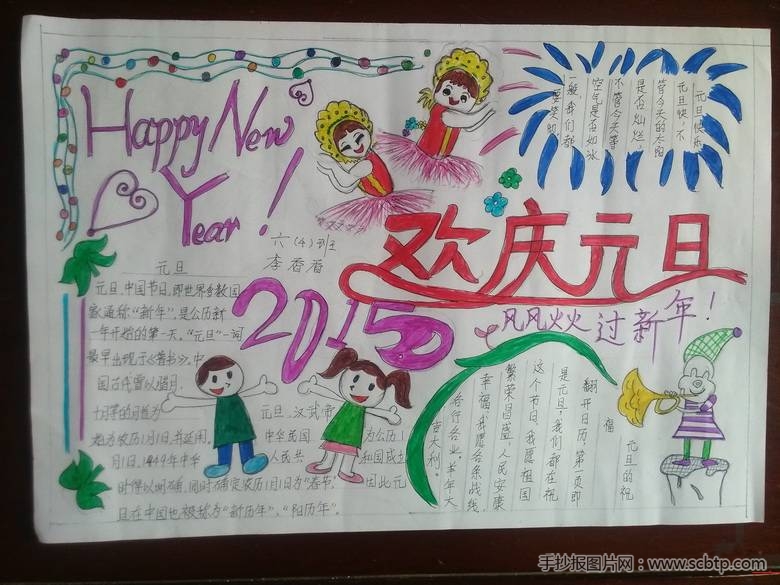 Happy New
Year!
六(4)班
李香香
欢庆元旦
2015
风风火火过新年!
元旦
元旦,中国节日,即世界多数国
家通称“新年”,是公历新
一年开始的第一天。“元旦”一词
最早出现于《晋书》。中
国古代曾以腊月、
十月等的月首为
元旦,汉武帝
始为农历1月1日,并延用。
中华民国
为公历1
月1日,1949年中华
人民共
和国成立
时得以明确,同时确定农历1月1日为“春节”,
因此元
旦在中国也被称为“新历年”、“阳历年”。
元旦快乐
元旦快,不
管今天的太阳
是否灿烂,
不管今天事
空气是否如冰
一般,我们都
要笑即
元旦的祝
福
翻开日历,第一页即
是元旦,我们都在祝
这个节日。我愿祖国
繁荣昌盛,人民安康
幸福,我愿各条战线,
各行各业,羊年大
吉大利。
手抄报图片网:www.scbtp.com